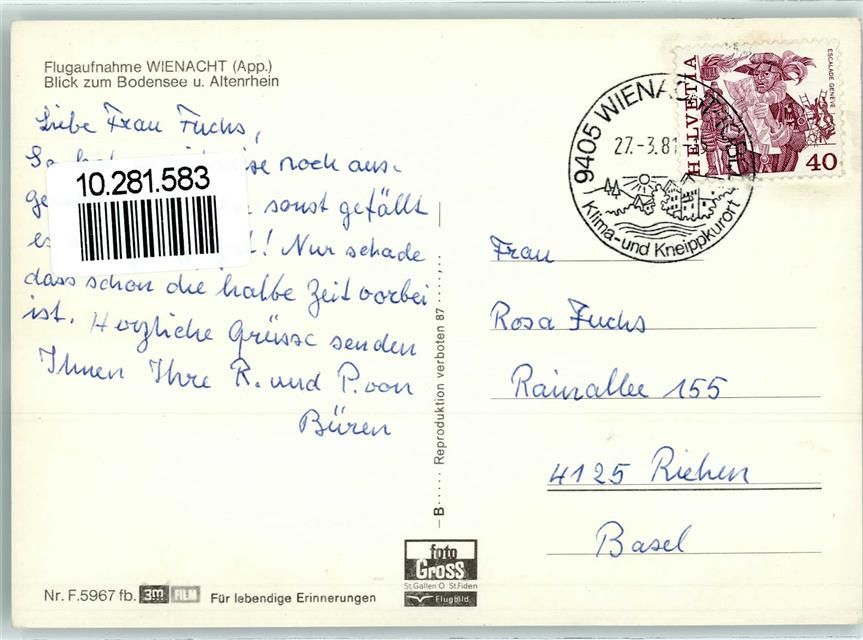 Flugaufnahme WIENACHT (App.)
Blick zum Bodensee u. Altenrhein
Liebe Frau Fuchs,
noch aus-
10.281.583
sonst gefällt
es ! Nur schade
dass schon die halbe Zeit vorbei
ist. Herzliche Grüsse senden
Ihnen Ihre R. und P. von
Büren
HELVETIA
ESCALADE GENÈVE
40
9405 WIENACHT
27.-3.81
Klima-und Kneippkurort
Frau
Rosa Fuchs
Rainallee 155
4125 Riehen
Basel
– B ..... Reproduktion verboten 87
foto
Gross
St.Gallen O St.Fiden
Flugbild
Nr. F.5967 fb. 3m FILM Für lebendige Erinnerungen